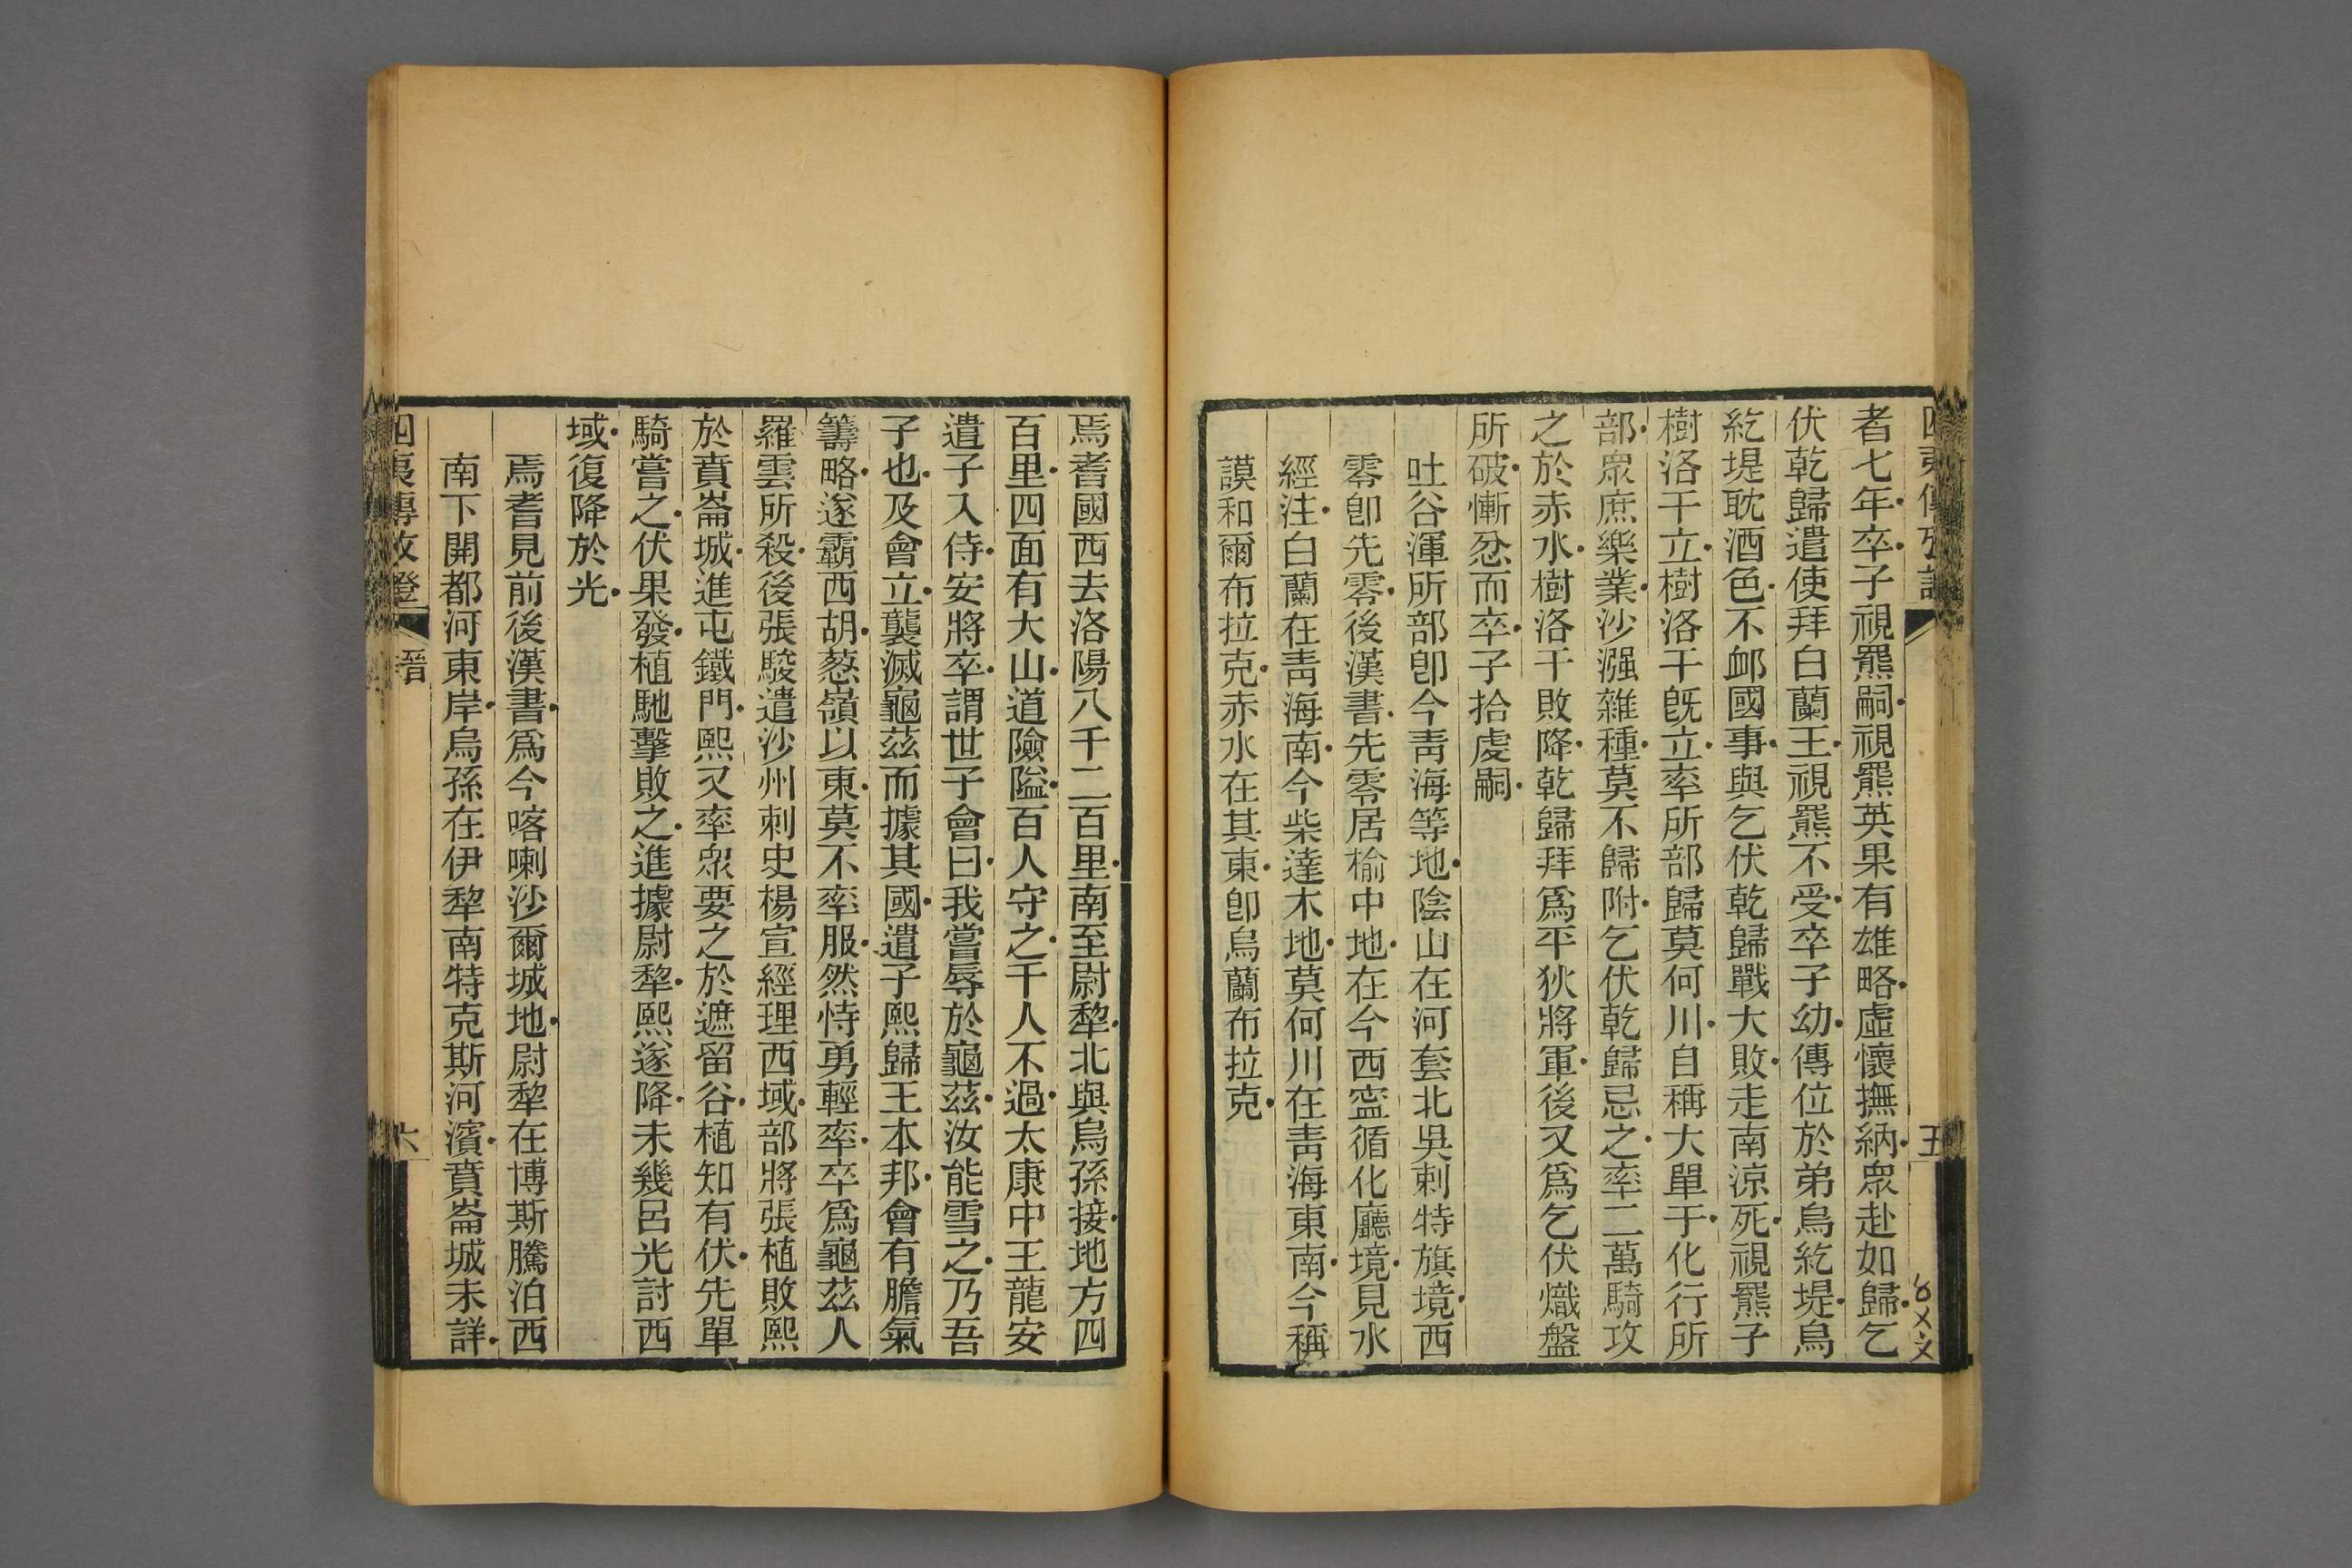 者七年卒子視羆嗣視羆英果有雄略虛懷撫納眾赴如歸乞
伏乾歸遣使拜白蘭王視羆不受卒子幼傳位於弟烏紇堤烏
紇堤耽酒色不䘏國事與乞伏乾歸戰大敗走南涼死視羆子
樹洛干立樹洛干旣立率所部歸莫何川自稱大單于化行所
部眾庶樂業沙漒雜種莫不歸附乞伏乾歸忌之率二萬騎攻
之於赤水樹洛干敗降乾歸拜爲平狄將軍後又爲乞伏熾盤
所破慚忿而卒子拾虔嗣
吐谷渾所部卽今靑海等地陰山在河套北吳剌特旗境西
零卽先零後漢書先零居榆中地在今西寍循化廳境見水
經注白蘭在靑海南今柴達木地莫何川在靑海東南今稱
謨和爾布拉克赤水在其東卽烏蘭布拉克
五
焉耆國西去洛陽八千二百里南至尉犂北與烏孫接地方四
百里四面有大山道險隘百人守之千人不過太康中王龍安
遣子入侍安將卒謂世子會曰我嘗辱於龜茲汝能雪之乃吾
子也及會立襲滅龜茲而據其國遣子熙歸王本邦會有膽氣
籌略遂霸西胡葱嶺以東莫不率服然恃勇輕率卒爲龜茲人
羅雲所殺後張駿遣沙州刺史楊宣經理西域部將張植敗熙
於賁崙城進屯鐵門熙又率眾要之於遮留谷植知有伏先單
騎嘗之伏果發植馳擊敗之進據尉犂熙遂降未幾呂光討西
域復降於光
焉耆見前後漢書爲今喀喇沙爾城地尉犂在博斯騰泊西
南下開都河東岸烏孫在伊犂南特克斯河濱賁崙城未詳
四夷傳攷證
晉
六